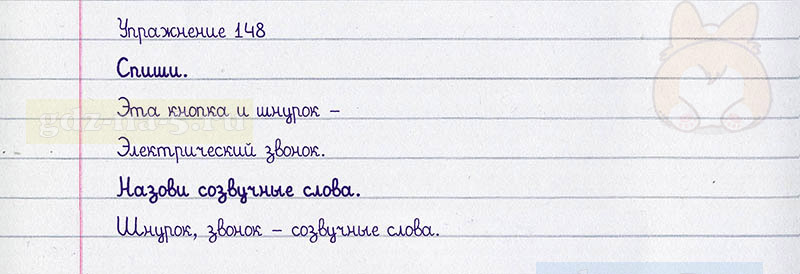 Упражнение 148
Спиши.
Эта кнопка и шнурок –
Электрический звонок.
Назови созвучные слова.
Шнурок, звонок – созвучные слова.
gdz-na-5.ru